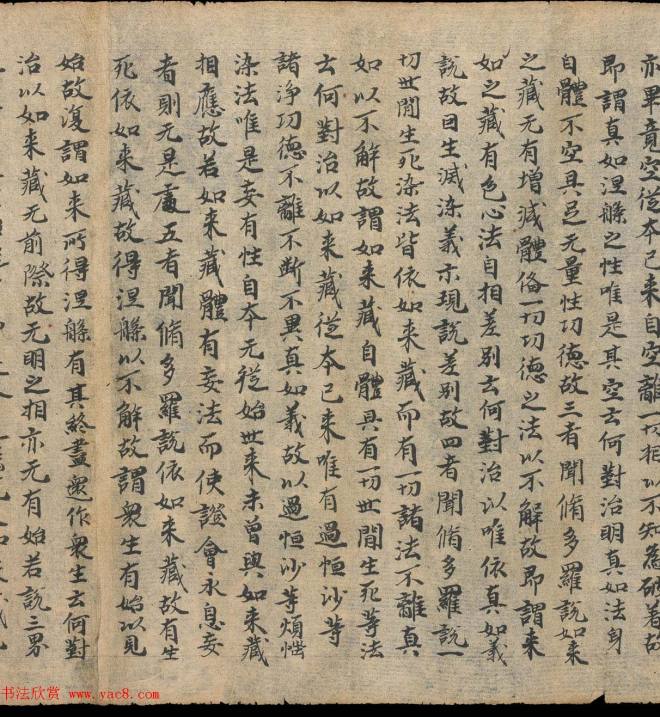 亦畢竟空從本已来自空離一切相以不知為破着故
即謂真如涅槃之性唯是其空云何對治明真如法身
自體不空具足无量性功德故三者聞脩多羅說如来
之藏无有增減體俻一切功德之法以不解故即謂来
如之藏有色心法自相差別云何對治以唯依真如義
說故曰生滅染義示現說差別故四者聞脩多羅說一
切世間生死染法皆依如来藏而有一切諸法不離真
如以不解故謂如来藏自體具有一切世間生死等法
云何對治以如来藏從本已来唯有過恒沙等
諸淨功德不離不断不異真如義故以過恒沙等煩惱
染法唯是妄有性自本无從始世来未曾與如来藏
相應故若如来藏體有妄法而使證會永息妄
者則无是處五者聞脩多羅說依如来藏故有生
死依如来藏故得涅槃以不解故謂衆生有始以見
始故復謂如来所得涅槃有其終盡還作衆生云何對
治以如来藏无前際故无明之相亦无有始若說三界
书法欣赏 www.yac8.com